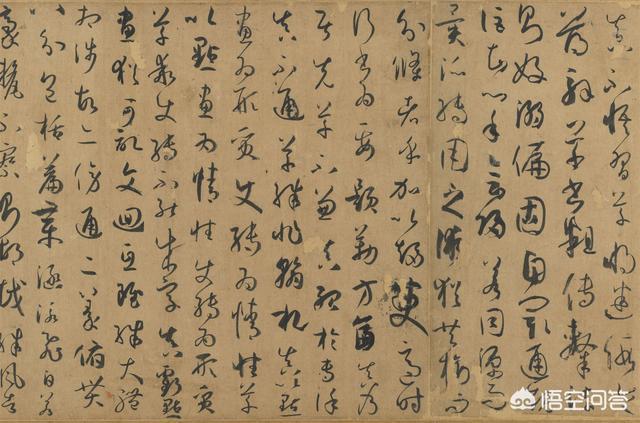 真不悟習草將迷假令
薄解草書粗傳隸法
則好溺偏固自閡通規
詎知心手會歸若同源而
異派轉用之術猶共樹而
分條者乎加以趨變適時
行書為要題勒方畐真乃
居先草不兼真殆於專謹
真不通草殊非翰札真以點
畫為形質使轉為情性草
以點畫為情性使轉為形質
草乖使轉不能成字真虧點
畫猶可記文迴互雖殊大體
相涉故亦傍通二篆俯貫
八分包括篇章涵泳飛白若
毫釐不察則胡越殊風者
悟空问答